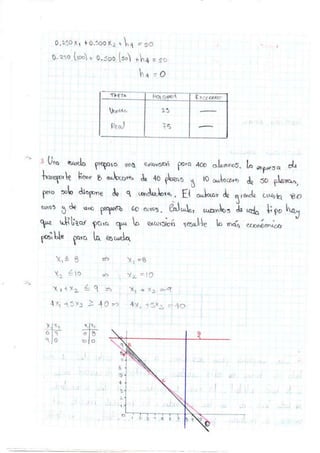 0.250 X₁ + 0.500 X₂ + h₁ = 50
0.250 (100) + 0.500 (50) + h₁ = 50
h₁ = 0
META HOLGURA EXCEDENTE
25 —
Real 75 —
3. Una escuela prepara una excursión para 400 alumnos. La empresa de
transporte tiene 8 autocares de 40 plazas y 10 autocares de 50 plazas,
pero solo dispone de 9 conductores. El autocar de grande cuesta 80
euros y de uno pequeño 60 euros. Calcular cuantos de cada tipo hay
que utilizar para que la excursión resulte lo más económica
posible para la escuela
X₁ ≤ 8 X₁ = 8
X₂ ≤ 10 X₂ = 10
X₁ + X₂ ≤ 9 X₁ + X₂ = 9
4X₁ + 5X₂ ≥ 40 4X₁ + 5X₂ = 40
X₁ X₂ X₁ X₂
0 9 0 8
9 0 10 0